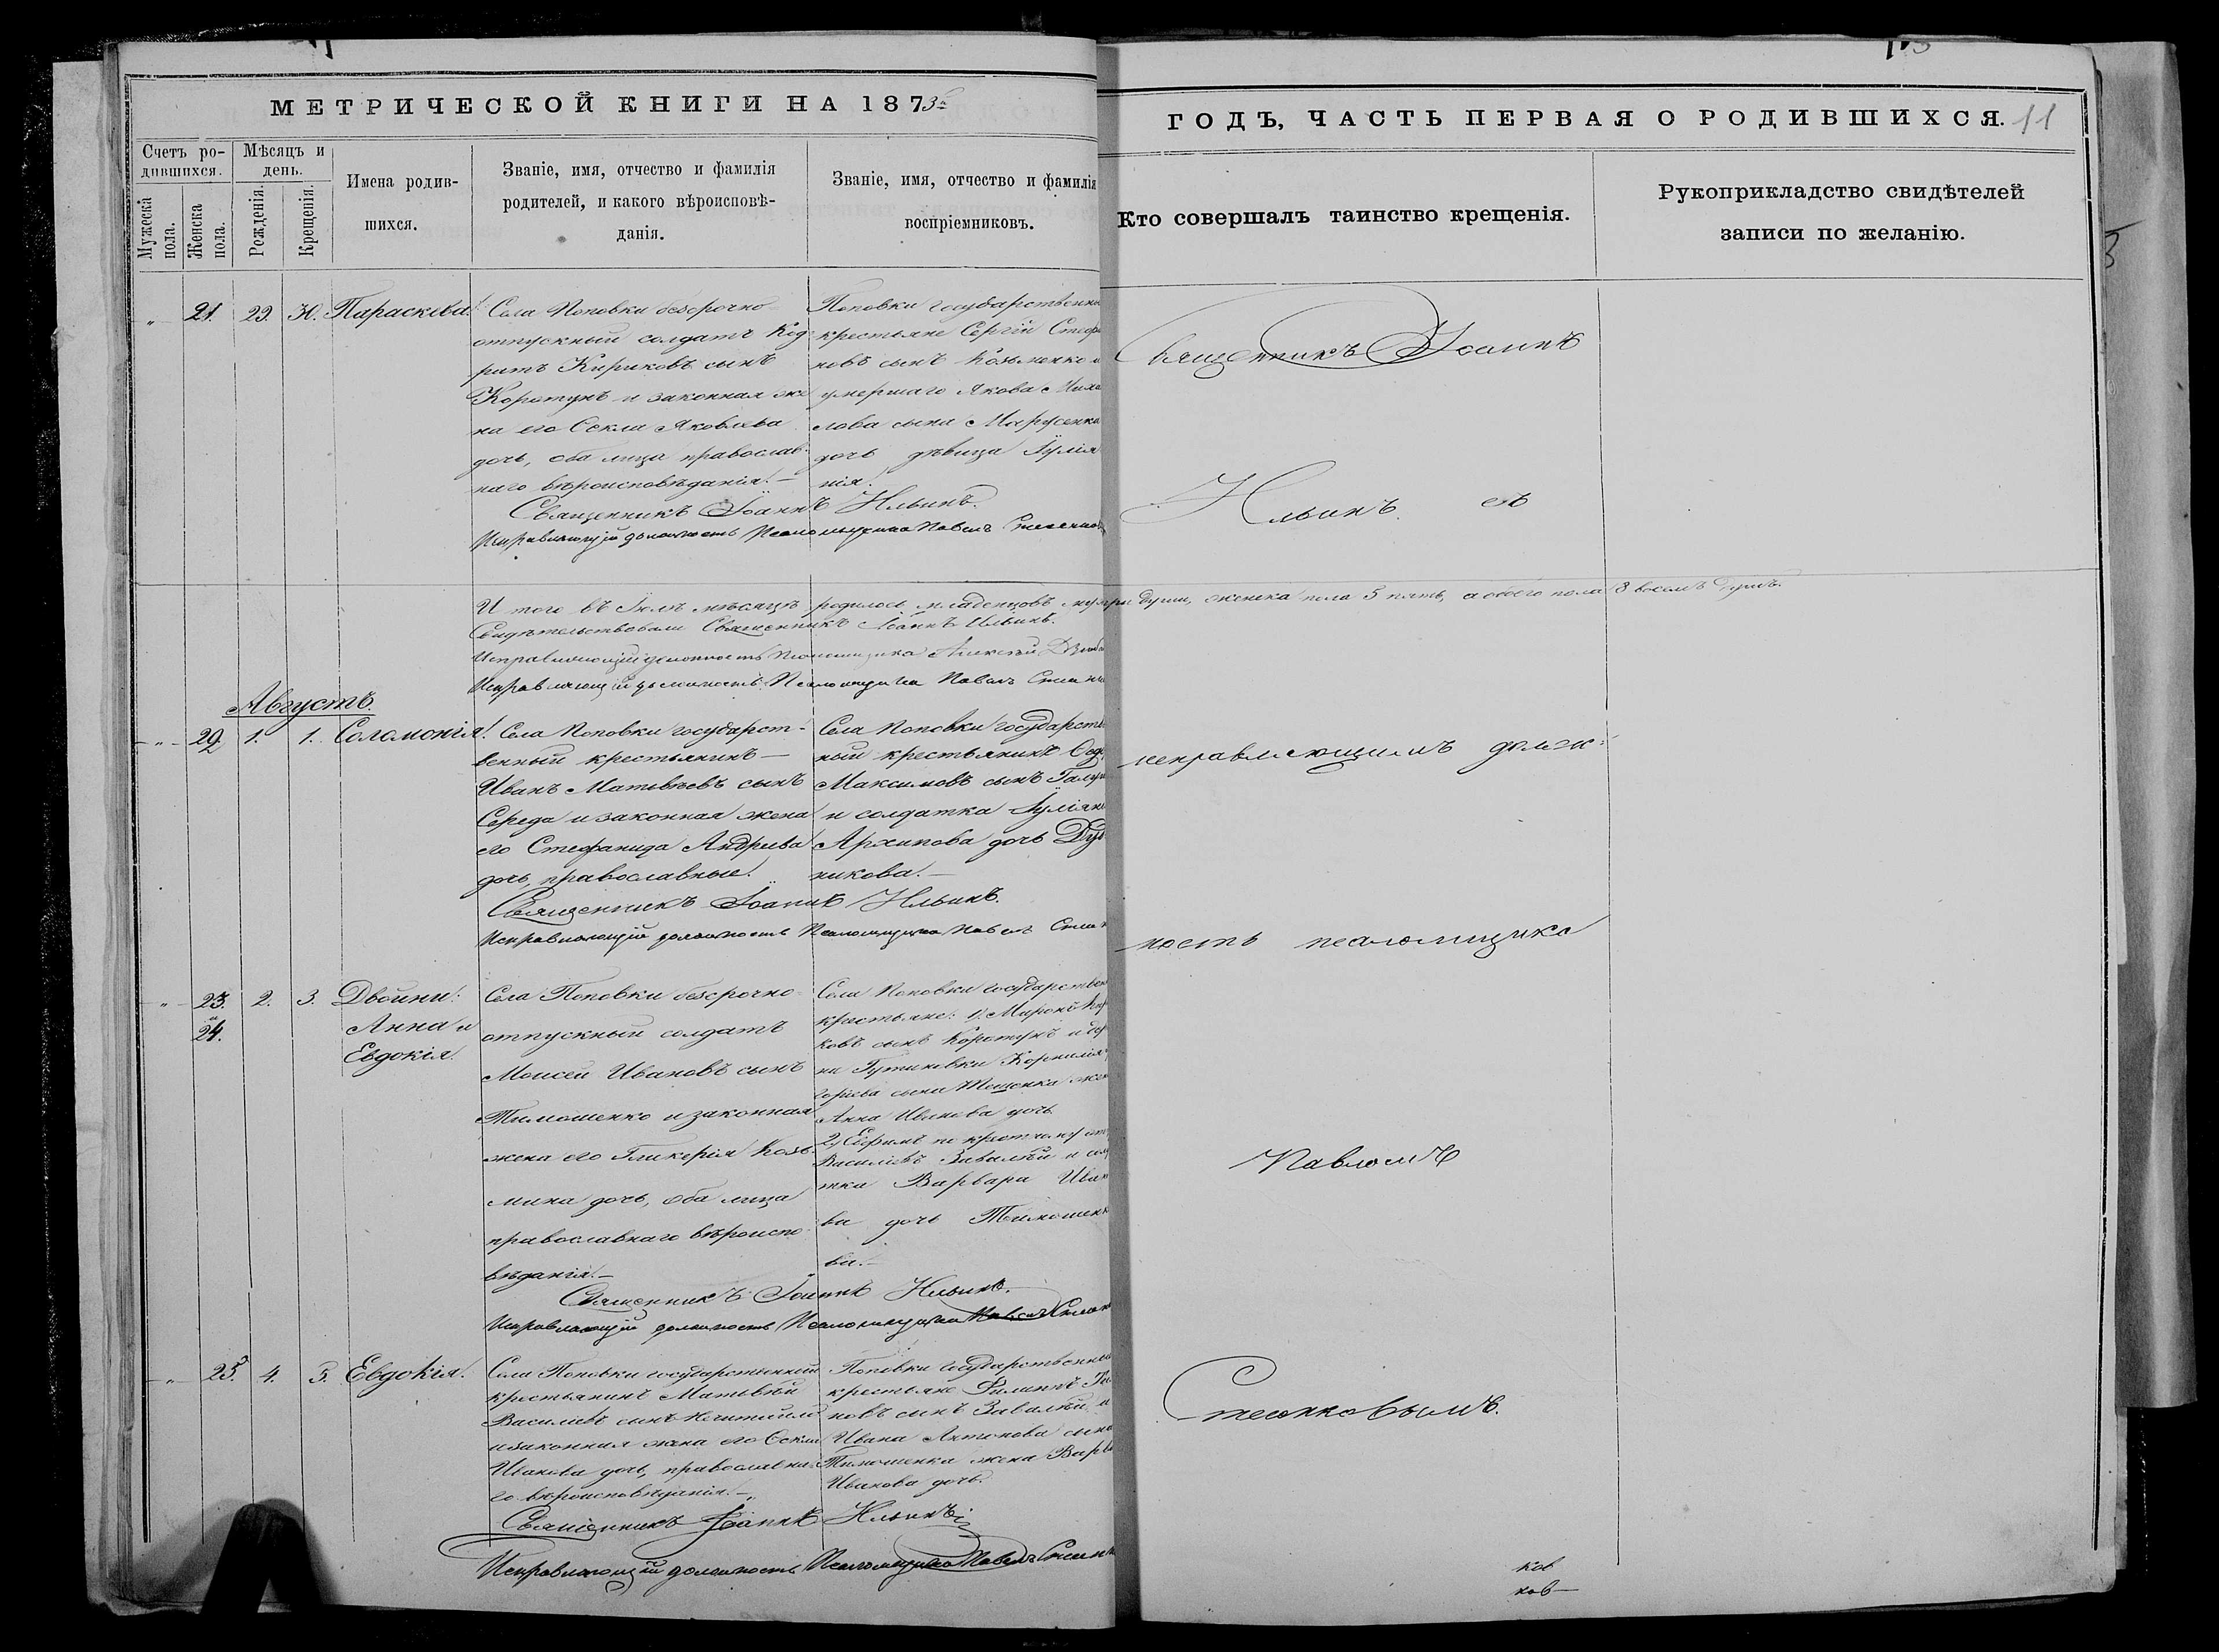 МЕТРИЧЕСКОЙ КНИГИ НА 1873
ГОДЪ, ЧАСТЬ ПЕРВАЯ О РОДИВШИХСЯ. 11
Счетъ ро-
дившихся.
Мужеска пола.
Женска пола.
Мѣсяцъ и
день.
Рожденія.
Крещенія.
Имена родив-
шихся.
Званіе, имя, отчество и фамилія
родителей, и какого вѣроисповѣ-
данія.
Званіе, имя, отчество и фамилія
воспріемниковъ.
Кто совершалъ таинство крещенія.
Рукоприкладство свидѣтелей
записи по желанію.
" 21. 29. 30. Параскева.
Села Поповки безсрочно
отпускный солдатъ
Кириковъ сынъ
Коротунъ и законная же
на его Яковлева
дочь, оба лица православ-
наго вѣроисповѣданія.
Поповки государственны
крестьяне Сергій
новъ сынъ
умершаго Якова
лова сына
дочь дѣвица Іулія
нія.
Священникъ Іоаннъ Ильинъ.
Исправляющій должность Псаломщика Павелъ
И того въ Іюлѣ мѣсяцѣ родилось младенцовъ души, женска пола 5 пять, а обоего пола 8 восемь душъ.
Свидѣтельствовали Священникъ Іоаннъ Ильинъ.
Исправляющій должность Псаломщика Алексѣй
Исправляющій должность Псаломщика Павелъ
Августъ.
" 22 1. 1. Соломонія.
Села Поповки государст-
венный крестьянинъ
Иванъ Матвѣевъ сынъ
Середа и законная жена
его Стефанида Андреева
дочь, православные.
Села Поповки государств
ный крестьянинъ
Максимовъ сынъ
и солдатка Іуліян
Архипова дочь
никова.
Священникъ Іоаннъ Ильинъ.
Исправляющій должность Псаломщика Павелъ
" 23. и 24. 2. 3. Двойни:
Анна и
Евдокія.
Села Поповки безсрочно
отпускный солдатъ
Моисей Ивановъ сынъ
Тимошенко и законная
жена его Гликерія Козь-
мина дочь, оба лица
православнаго вѣроиспо-
вѣданія.
Села Поповки государствен
крестьяне: 1) Миронъ
ковъ сынъ Коротунъ и дер
ни
сына жен
Анна Иванова дочь
2)
Василіевъ Завалѣй и сол
тка Варвара Ива
ва дочь Тимошенк
ва.
Священникъ Іоаннъ Ильинъ.
Исправляющій должность Псаломщика Павелъ
" 25. 4. 5. Евдокія.
Села Поповки государственный
крестьянинъ Матвѣй
Василіевъ сынъ
и законная жена его
Иванова дочь, православна
го вѣроисповѣданія.
Поповки государственны
крестьяне Филиппъ
новъ сынъ Завалѣй и
Ивана Антонова сына
Тимошенка жена Варва
Иванова дочь.
Священникъ Іоаннъ Ильинъ
Исправляющій должность Псаломщика Павелъ
Священникъ Іоаннъ
Ильинъ съ
исправляющимъ долж-
ность псаломщика
Павломъ
ков
ков